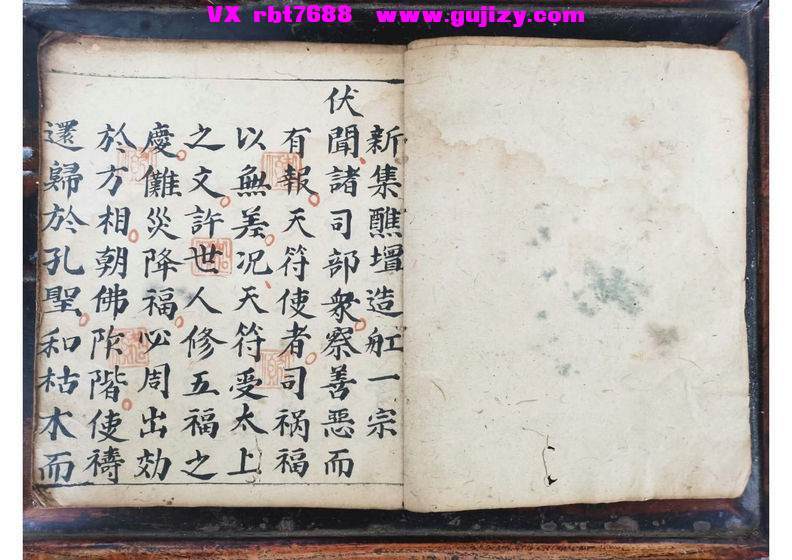 VX rbt7688 www.gujizy.com
新集醮壇造舡一宗
伏
聞諸司部衆察善惡而
有報天符使者司祸福
以無差况天符受太上
之文許世人修五福之
慶儺災降福必周出効
於方相朝佛阼階使禱
還歸於孔聖和枯木而